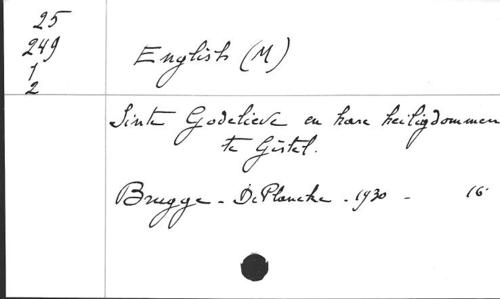 25
249
1
2
English (M)
Sinte Godelieve en hare heiligdommen
te Gistel.
Brugge - De Plancke - 1930 - 16°